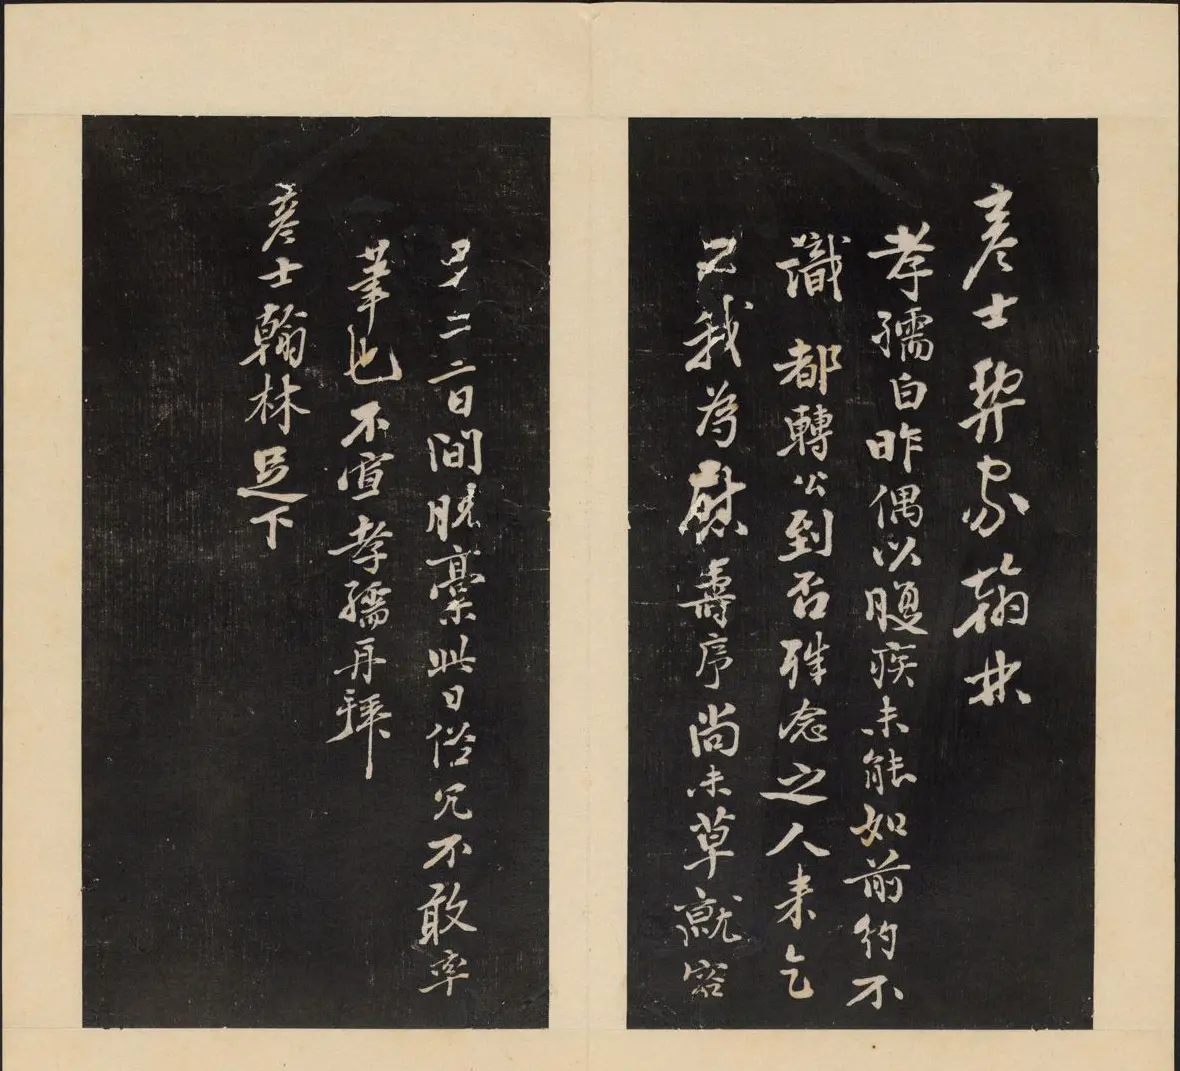 彥士契家翰林
孝孺白昨偶以腹疾未能如前約不
識 都轉公到否殊念之人来乞
我為慰壽序尚未草就容
日間脫稾此日俗冗不敢率
筆也不宣孝孺再拜
彥士翰林足下